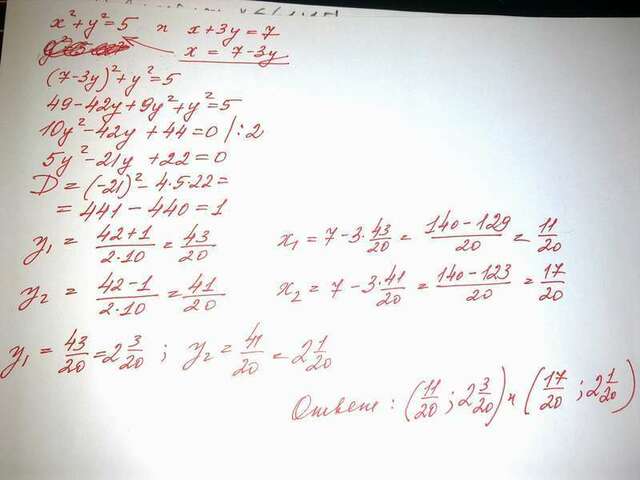 x²+y²=5 и x+3y=7
x = 7-3y
(7-3y)²+y²=5
49-42y+9y²+y²=5
10y²-42y+44=0 /:2
5y²-21y+22=0
D = (-21)²-4·5·22=
= 441-440=1
y₁ = (42+1)/(2·10) = 43/20    x₁ = 7-3·43/20 = (140-129)/20 = 11/20
y₂ = (42-1)/(2·10) = 41/20    x₂ = 7-3·41/20 = (140-123)/20 = 17/20
y₁ = 43/20 = 2 3/20 ; y₂ = 41/20 = 2 1/20
Ответ: (11/20 ; 2 3/20) и (17/20 ; 2 1/20)